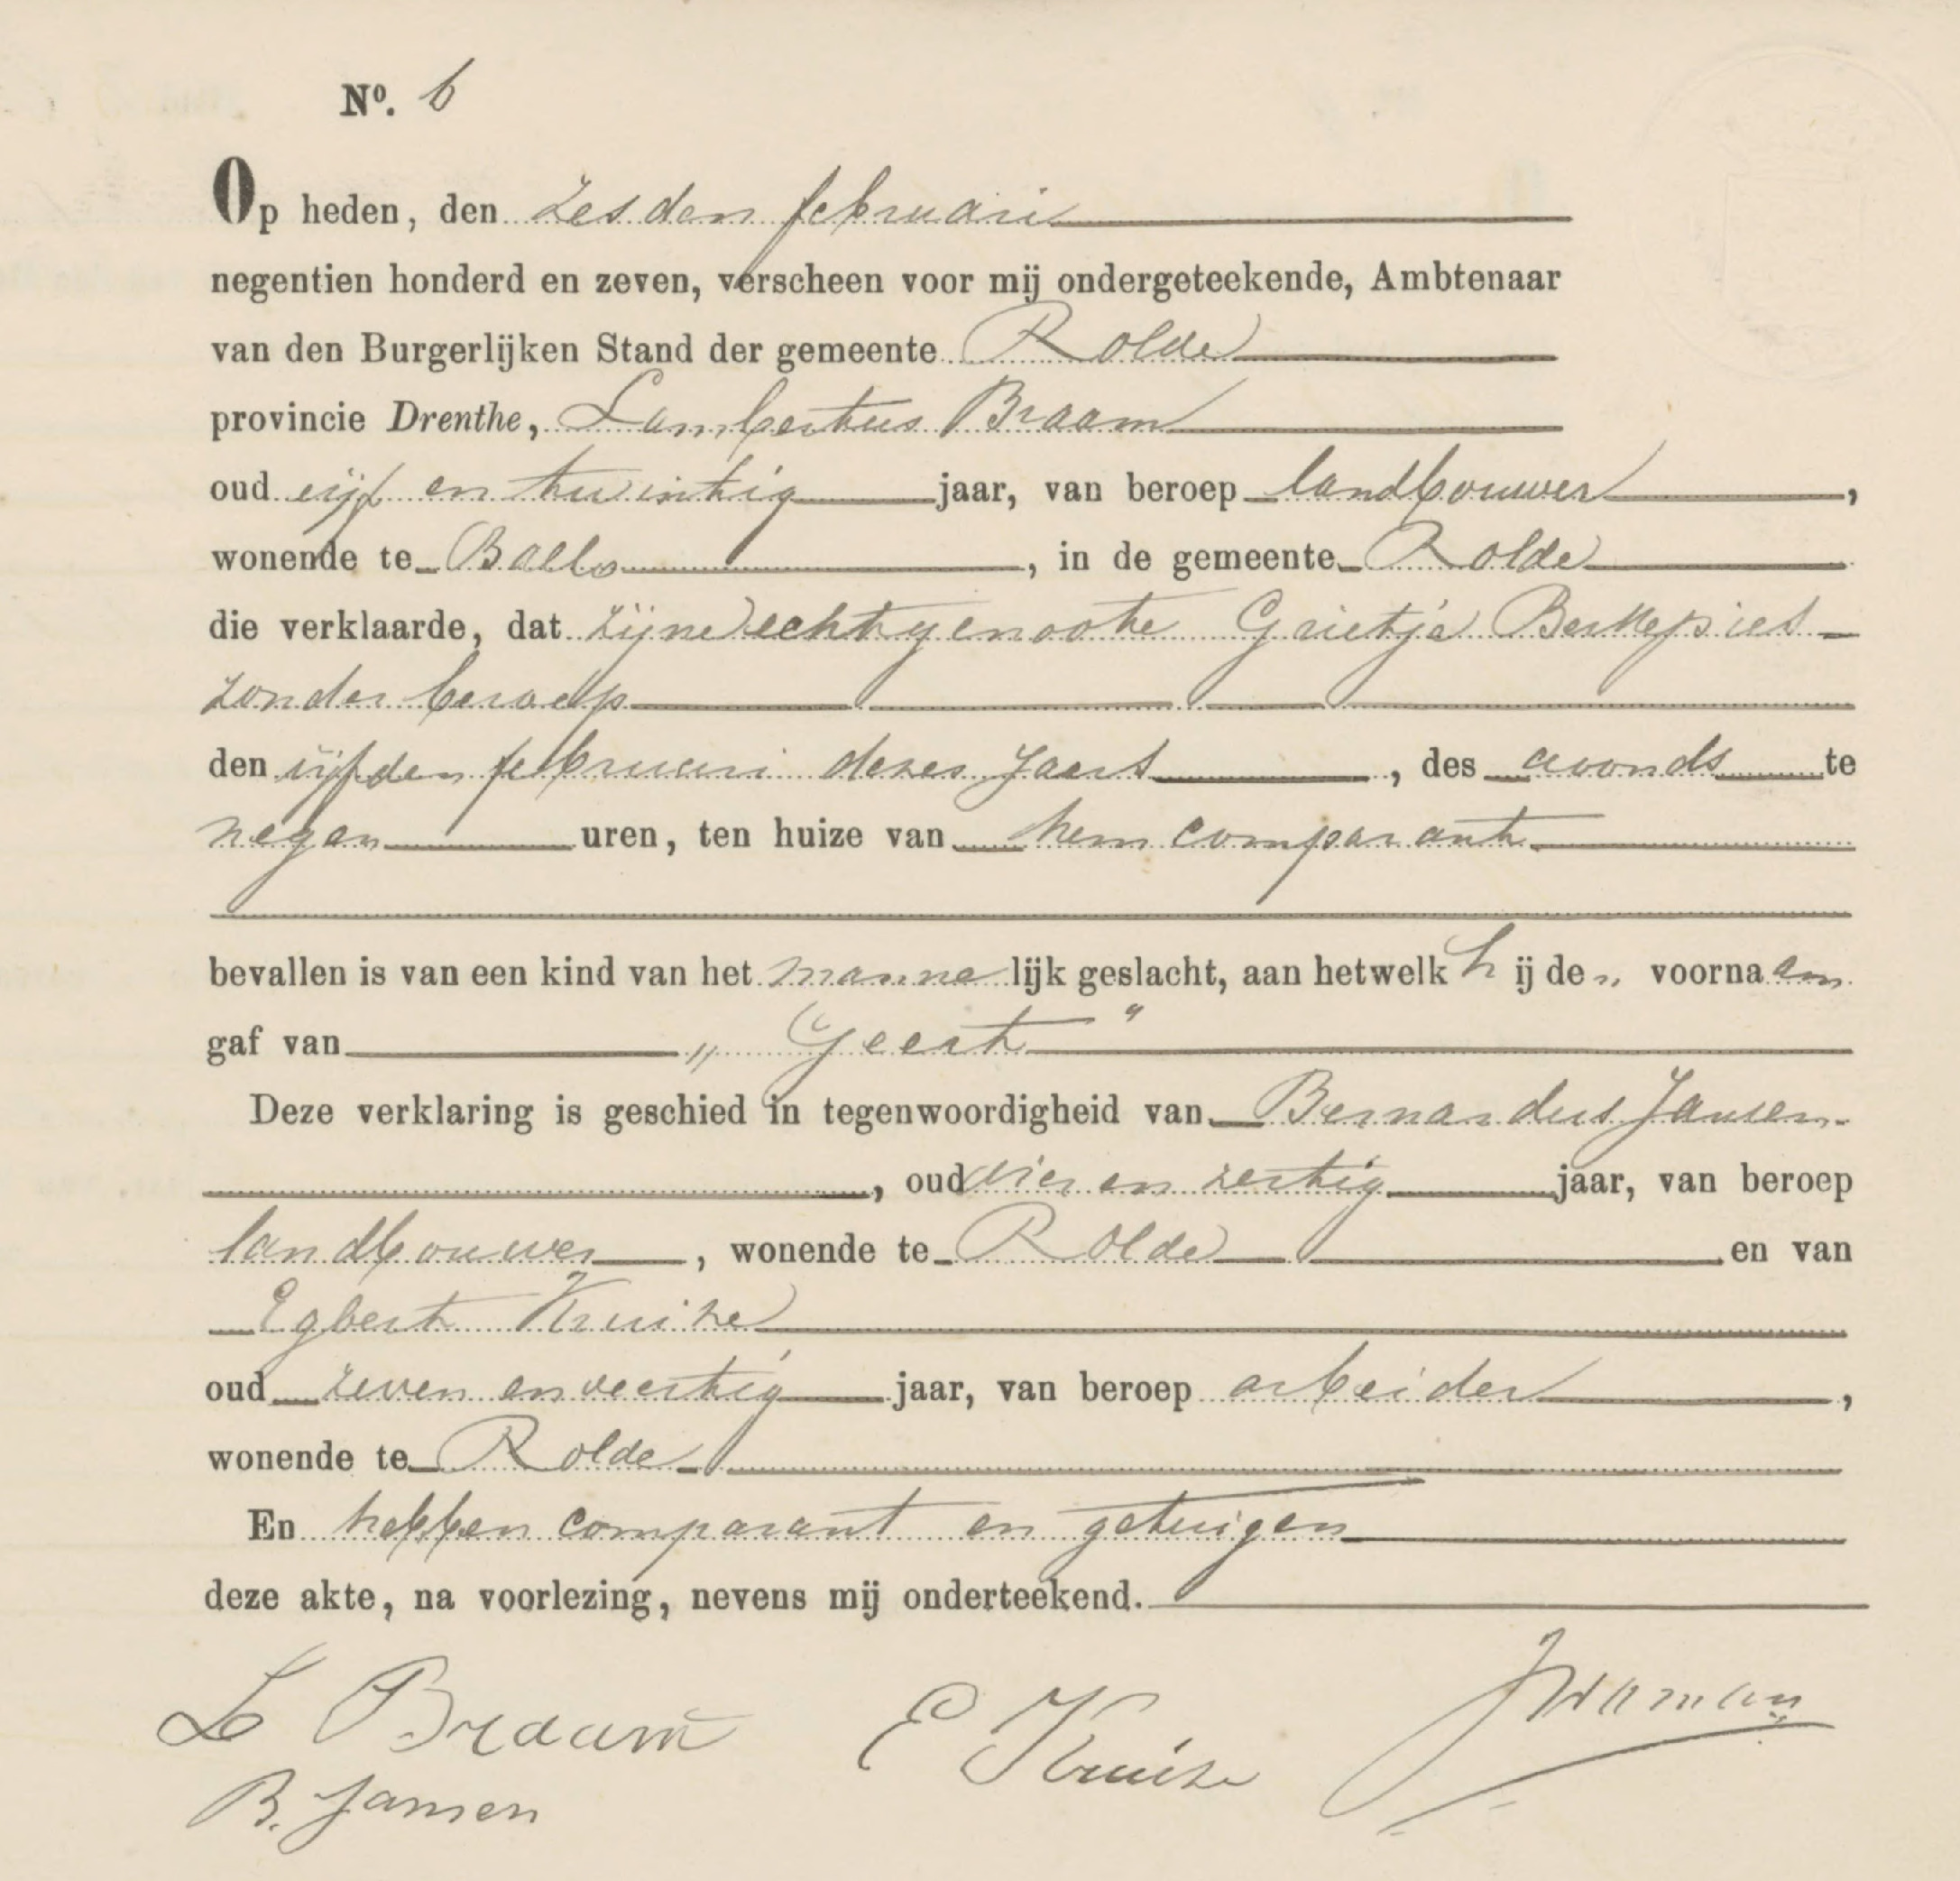 No. 6
Op heden, den zesden februari
negentien honderd en zeven, verscheen voor mij ondergeteekende, Ambtenaar
van den Burgerlijken Stand der gemeente Rolde
provincie Drenthe, Lambertus Braam
oud vijf en twintig jaar, van beroep landbouwer,
wonende te Ballo, in de gemeente Rolde
die verklaarde, dat zijne echtgenoote Grietje Berkepies
zonder beroep
den vijfden februari dezes jaars, des avonds te
negen uren, ten huize van hem comparant
bevallen is van een kind van het mannelijk geslacht, aan hetwelk hij den voornaam
gaf van „Geert"
Deze verklaring is geschied in tegenwoordigheid van Bernardus Jansen
, oud vier en zestig jaar, van beroep
landbouwer, wonende te Rolde en van
Egbert Kruize
oud zeven en veertig jaar, van beroep arbeider,
wonende te Rolde
En hebben comparant en getuigen
deze akte, na voorlezing, nevens mij onderteekend.
L Braam E Kruize
B. Jansen